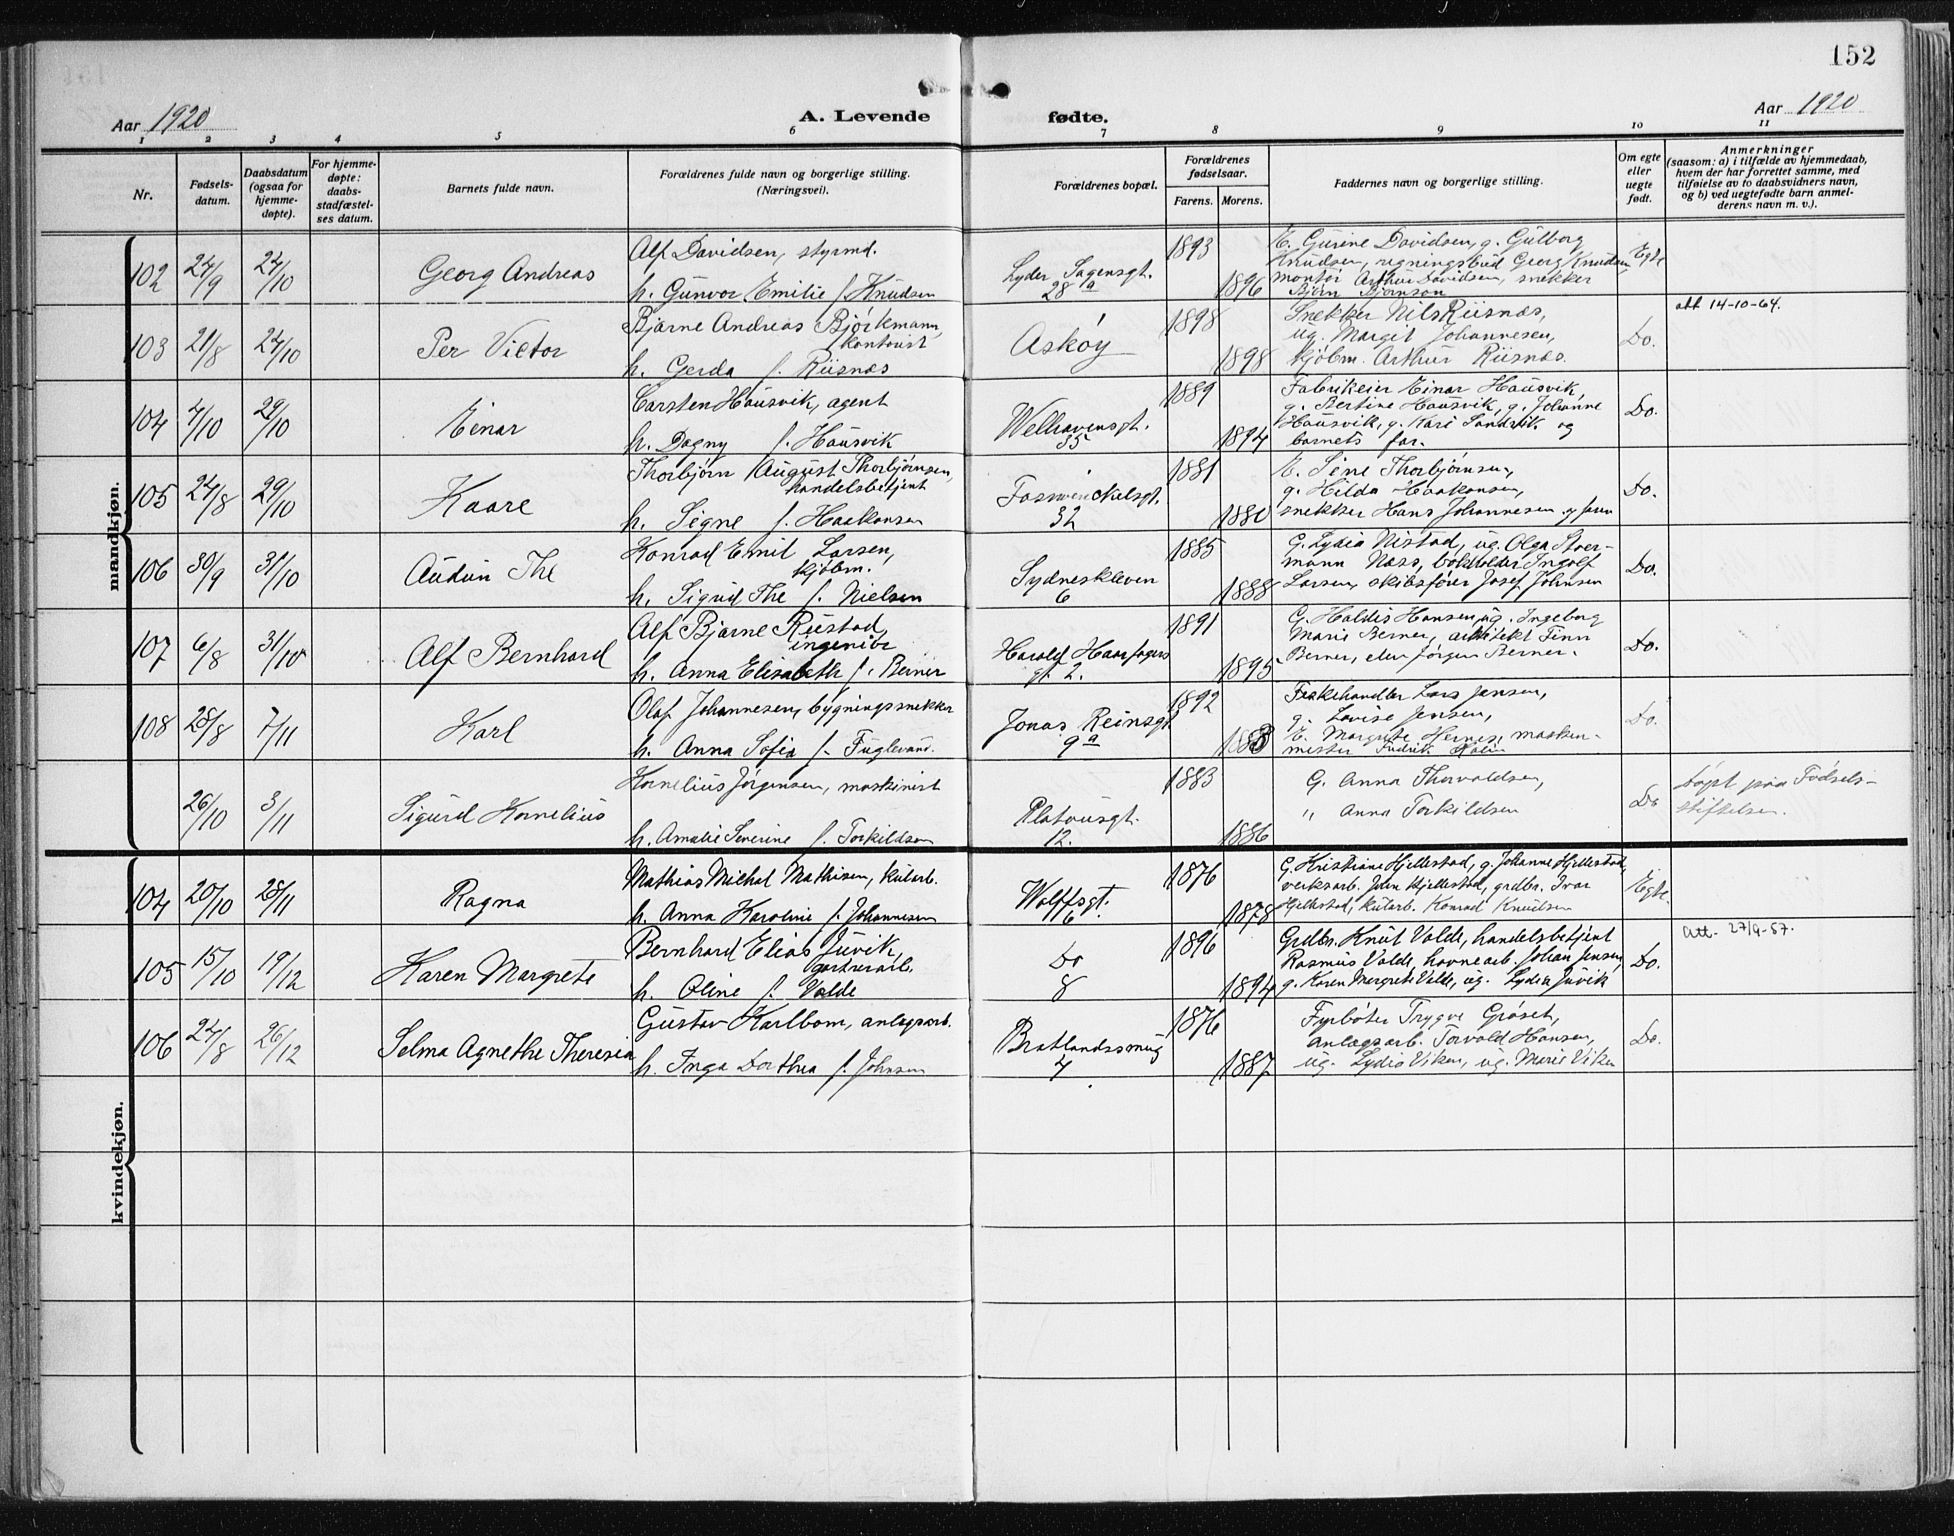 152
Aar 1920
A. Levende fødte.
Aar 1920
1 2 3 4 5 6 7 8 9 10 11
Nr.
Fødsels-
datum.
Daabsdatum
(ogsaa for
hjemme-
døpte).
For hjemme-
døpte:
daabs-
stadfæstel-
ses datum.
Barnets fulde navn.
Forældrenes fulde navn og borgerlige stilling.
(Næringsvei).
Forældrenes bopæl.
Forældrenes
fødselsaar.
Farens. Morens.
Faddernes navn og borgerlige stilling.
Om egte
eller
uegte
født.
Anmerkninger
(saasom: a) i tilfælde av hjemmedaab,
hvem der har forrettet samme, med
tilføielse av to daabsvidners navn,
og b) ved uegtefødte barn anmel-
derens navn m. v.).
mandkjøn.
102 24/9 24/10 Georg Andreas
Alf Davidsen, styrmd.
h. Gunvor Emilie f. Knudsen
Lyder Sagensgt.
28 a
1893
1896
E. Gurine Davidsen, g. Gulborg
Knudsen, regningsbud Georg Knudsen,
montør Arthur Davidsen, snekker
Bjørn Bjørnson
Egte
103 21/8 24/10 Per Victor
Bjarne Andreas Bjørkmann,
kontorist
h. Gerda f. Riisnæs
Askøy
1898
1898
Snekker Nils Riisnæs,
ug. Margit Johannesen,
kjøbm. Arthur Riisnæs.
Do.
att 14-10-64.
104 4/10 29/10 Einar
Carsten Hausvik, agent
h. Dagny f. Hausvik
Welhavensgt.
35
1889
1894
Fabrikeier Einar Hausvik,
g. Bertine Hausvik, g. Johanne
Hausvik, g. Kari Sandvik og
barnets far.
Do.
105 24/8 29/10 Kaare
Thorbjørn August Thorbjørnsen,
handelsbetjent
h. Signe f. Haakonsen
Fosswinckelsgt.
32
1881
1880
E. Sine Thorbjørnsen,
g. Hilda Haakonsen,
snekker Hans Johannesen og faren
Do.
106 30/9 31/10 Audun The
Konrad Emil Larsen,
kjøbm.
h. Sigrid The f. Nielsen
Sydneskleven
6
1885
1888
G. Lydia Nistad, ug. Olga Stoer-
mann Næss, bokholder Ingolf
Larsen, skibsfører Josef Johnsen
Do.
107 6/8 31/10 Alf Bernhard
Alf Bjarne Rustad,
ingeniør
h. Anna Elisabeth f. Berner
Harald Haarfagers
gt. 2.
1891
1895
G. Haldis Hansen, ug. Ingeborg
Marie Berner, arkitekt Finn
Berner, elev Jørgen Berner.
Do.
108 28/8 7/11 Karl
Olaf Johannesen, bygningssnekker
h. Anna Sofia f. Fuglevand.
Jonas Reinsgt.
9 a
1892
1888
Fiskehandler Lars Jensen,
g. Lovise Jensen,
E. Margrete Hernes, maskin-
mester Fredrik
Do.
26/10 3/11 Sigurd Kornelius
Kornelius Jørgensen, maskinist
h. Amalie Severine f. Torkildsen
Platousgt.
12.
1883
1886
G. Anna Thorvaldsen,
„ Anna Torkildsen
Do
Døpt paa Fødsels-
stiftelsen.
kvindekjøn.
104 20/10 28/11 Ragna
Mathias Michal Mathisen, kularb.
h. Anna Karoline f. Johannesen
Wolffsgt.
6
1876
1878
G. Kristiane Hjellestad, g. Johanne Hjellestad,
verksarb. John Hjellestad, grdbr. Ivar
Hjellestad, kularb. Konrad Knudsen
Egte.
105 15/10 19/12 Karen Margrete
Bernhard Elias Juvik,
gartnerarb.
h. Oline f. Valde
Do
8
1896
1894
Grdbr. Knut Valde, handelsbetjent
Rasmus Valde, havnearb. Johan Jensen,
g. Karen Margrete Valde, ug. Lydia Juvik
Do.
att. 27/9-57.
106 24/8 26/12 Selma Agnethe Theresia
Gustav Karlbom, anlægsarb.
h. Inga Dorthea f. Johnsen
Bratlandssmug
4
1876
1887
Fyrbøter Trygve Grøset,
anlægsarb. Torvald Hansen,
ug. Lydia Viken, ug. Marie Viken
Do.